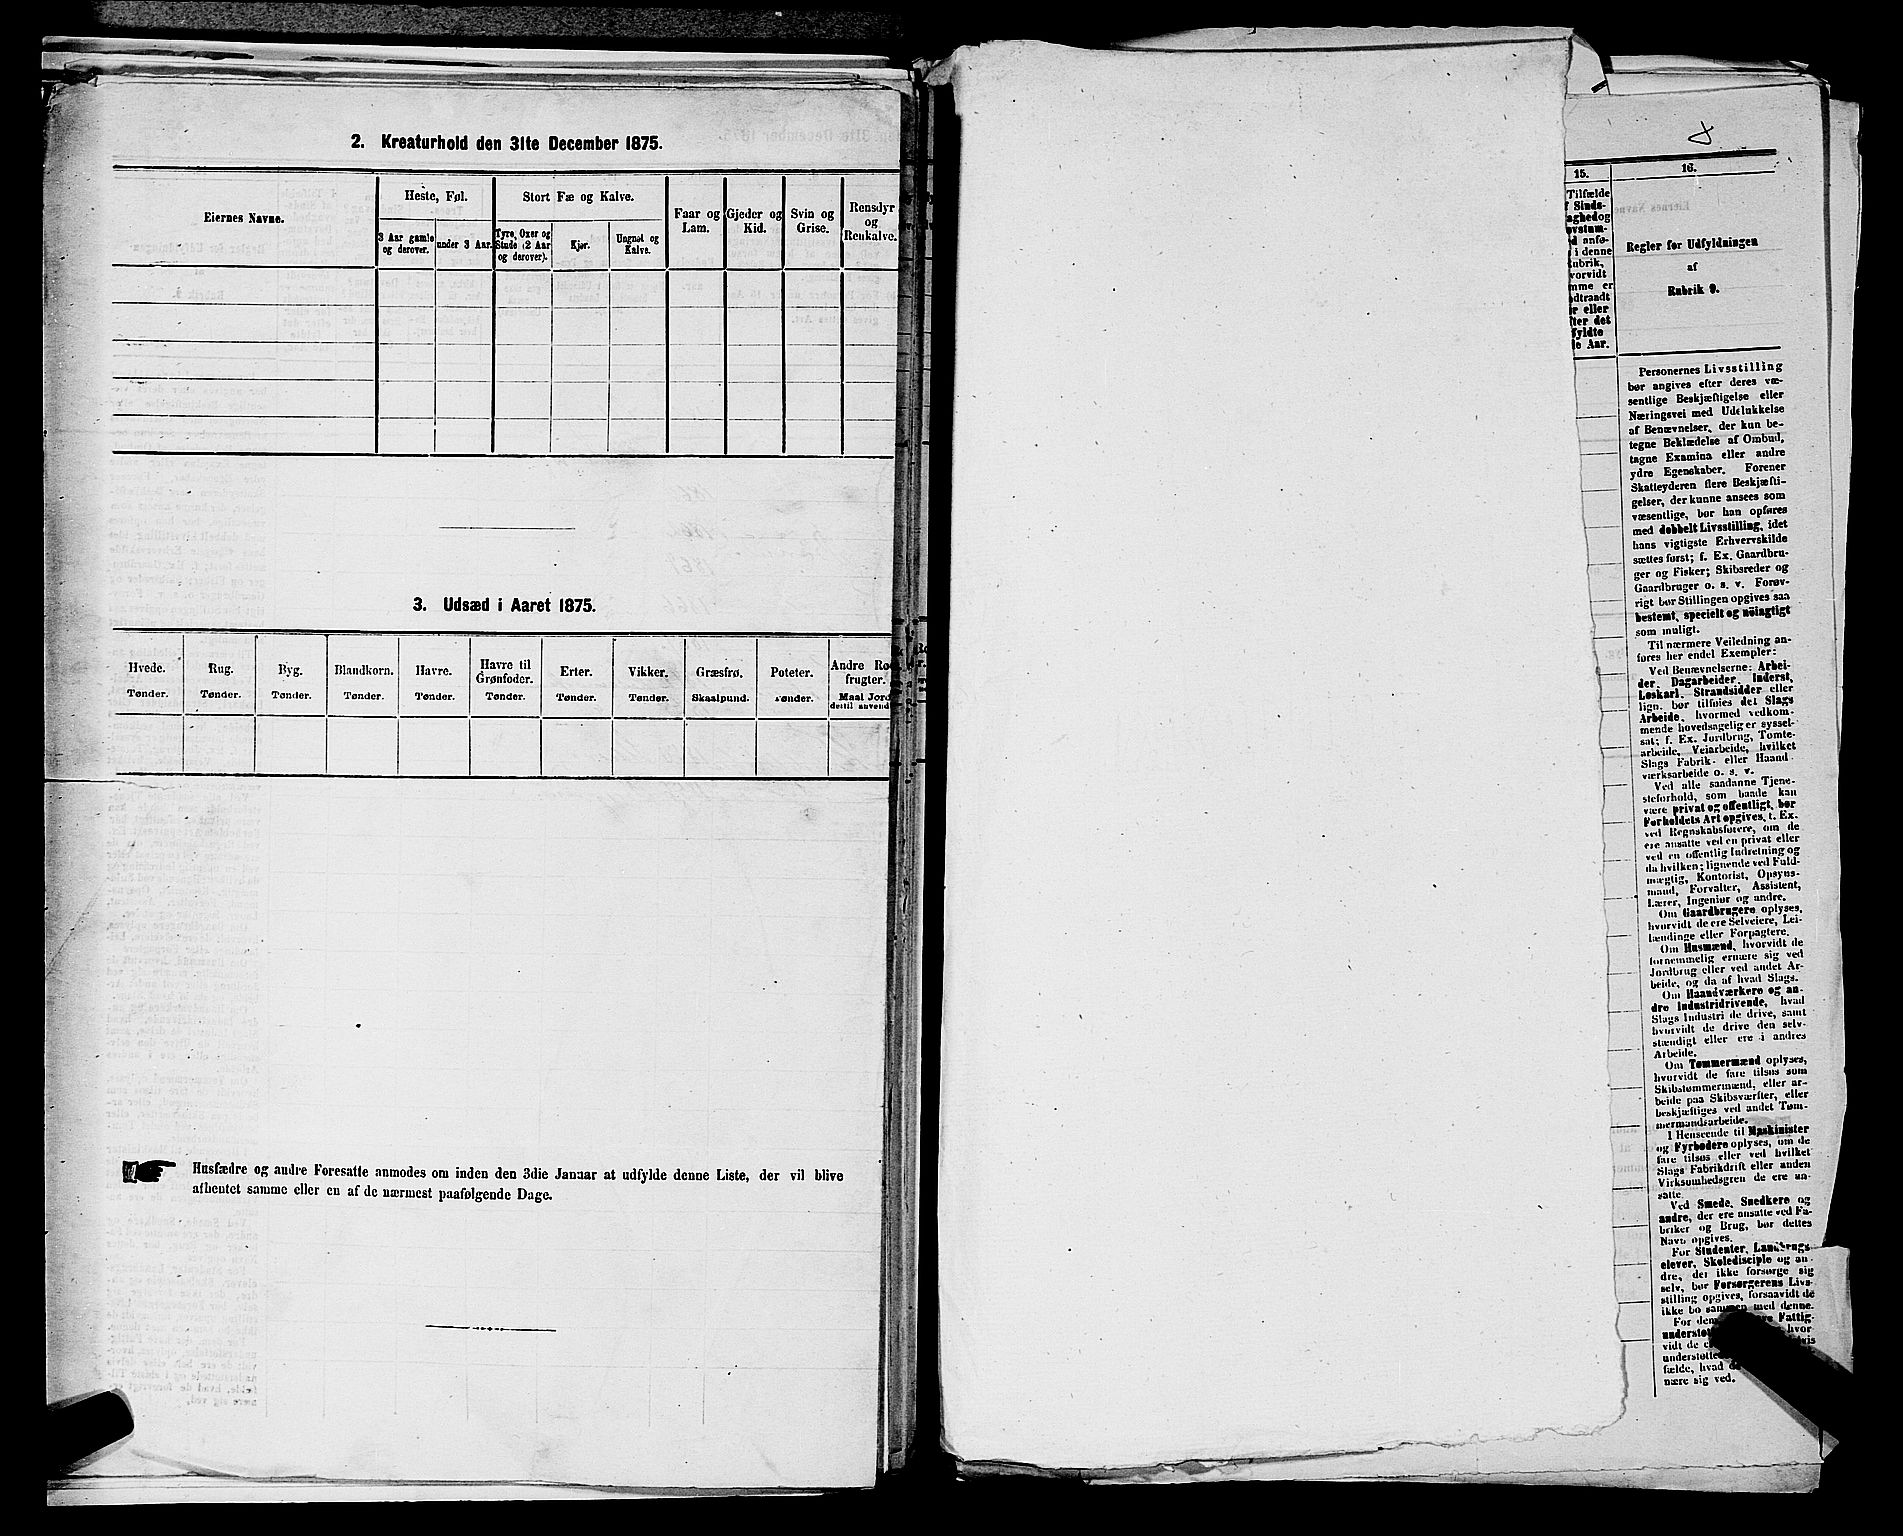 2. Kreaturhold den 31te December 1875.
Eiernes Navne.
Heste, Føl.
Stort Fæ og Kalve.
Faar og
Lam.
Gjeder og
Kid.
Svin og
Grise.
Rensdyr
og
Renkalve.
3 Aar gamle
og derover.
under 3 Aar.
Tyre, Oxer og
Stude (2 Aar
og derover).
Kjør.
Ungnøt og
Kalve.
3. Udsæd i Aaret 1875.
Hvede.
Rug.
Byg.
Blandkorn.
Havre.
Havre til
Grønfoder.
Erter.
Vikker.
Græsfrø.
Poteter.
Andre Rod
frugter.
Tønder. Tønder. Tønder. Tønder. Tønder. Tønder. Tønder. Tønder. Skaalpund. Tønder.
Maal Jord
dertil anvendt
Husfædre og andre Foresatte anmodes om inden den 3die Januar at udfylde denne Liste, der vil blive
afhentet samme eller en af de nærmest paafølgende Dage.
15.
Tilfælde
f Sinds-
aghed og
ovstum-
d anfø-
i denne
ubrik,
vorvidt
mme er
dtraadt
r eller
fter det
fyldte
de Aar.
16.
Regler for Udfyldningen
af
Rubrik 9.
Personernes Livsstilling
bør angives efter deres væ-
sentlige Beskjæftigelse eller
Næringsvei med Udelukkelse
af Benævnelser, der kun be-
tegne Beklædelse af Ombud,
tagne Examina eller andre
ydre Egenskaber. Forener
Skatteyderen flere Beskjæfti-
gelser, der kunne ansees som
væsentlige, bør han opføres
med dobbelt Livsstilling, idet
hans vigtigste Erhvervskilde
sættes først; f. Ex. Gaardbru-
ger og Fisker; Skibsreder og
Gaardbruger o. s. v. Forøv-
rigt bør Stillingen opgives saa
bestemt, specielt og nøiagtigt
som muligt.
Til nærmere Veiledning an-
føres her endel Exempler:
Ved Benævnelserne: Arbei-
der, Dagarbeider, Inderst,
Løskarl, Strandsidder eller
lign. bør tilføies det Slags
Arbeide, hvormed vedkom-
mende hovedsagelig er syssel-
sat; f. Ex. Jordbrug, Tomte-
arbeide, Veiarbeide, hvilket
Slags Fabrik- eller Haand-
værksarbeide o. s. v.
Ved alle saadanne Tjene-
steforhold, som baade kan
være privat og offentligt, bør
Forholdets Art opgives, t. Ex.
ved Regnskabsførere, om de
ere ansatte ved en privat eller
ved en offentlig Indretning og
da hvilken; lignende ved Fuld-
mægtig, Kontorist, Opsyns-
mand, Forvalter, Assistent,
Lærer, Ingeniør og andre.
Om Gaardbrugere oplyses,
hvorvidt de ere Selveiere, Lei-
lændinge eller Forpagtere.
Om Husmænd, hvorvidt de
fornemmelig ernære sig ved
Jordbrug eller ved andet Ar-
beide, og da af hvad Slags.
Om Haandværkere og an-
dre Industridrivende, hvad
Slags Industri de drive, samt
hvorvidt de drive den selv-
stændigt eller ere i andres
Arbeide.
Om Tømmermænd oplyses,
hvorvidt de fare tilsøs som
Skibstømmermænd, eller ar-
beide paa Skibsværfter, eller
beskjæftiges ved andet Tøm-
mermandsarbeide.
I Henseende til Maskinister
og Fyrbødere oplyses, om de
fare tilsøs eller ved hvilket
Slags Fabrikdrift eller anden
Virksomhedsgren de ere an-
satte.
Ved Smede, Snedkere og
andre, der ere ansatte ved Fa-
briker og Brug, bør dettes
Navn opgives.
For Studenter, Landbrugs-
elever, Skoledisciple og an-
dre, der ikke forsørge sig
selv, bør Forsørgerens Livs-
stilling opgives, forsaavidt de
ikke bo sammen med denne.
For dem Fattig-
underst hvor-
vidt de
understøtte
fælde, hvad
nære sig ved.